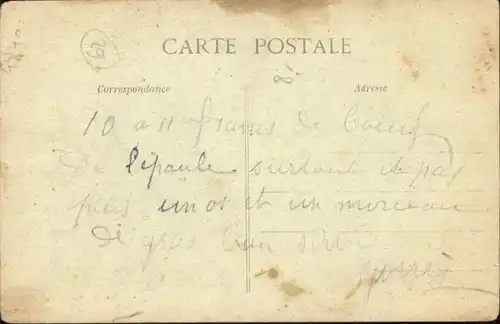 62
CARTE POSTALE
Correspondance
Adresse
10 a 11 francs de boeuf
De lepaule surtout et pas
pas un os et un morceau
de gras bien